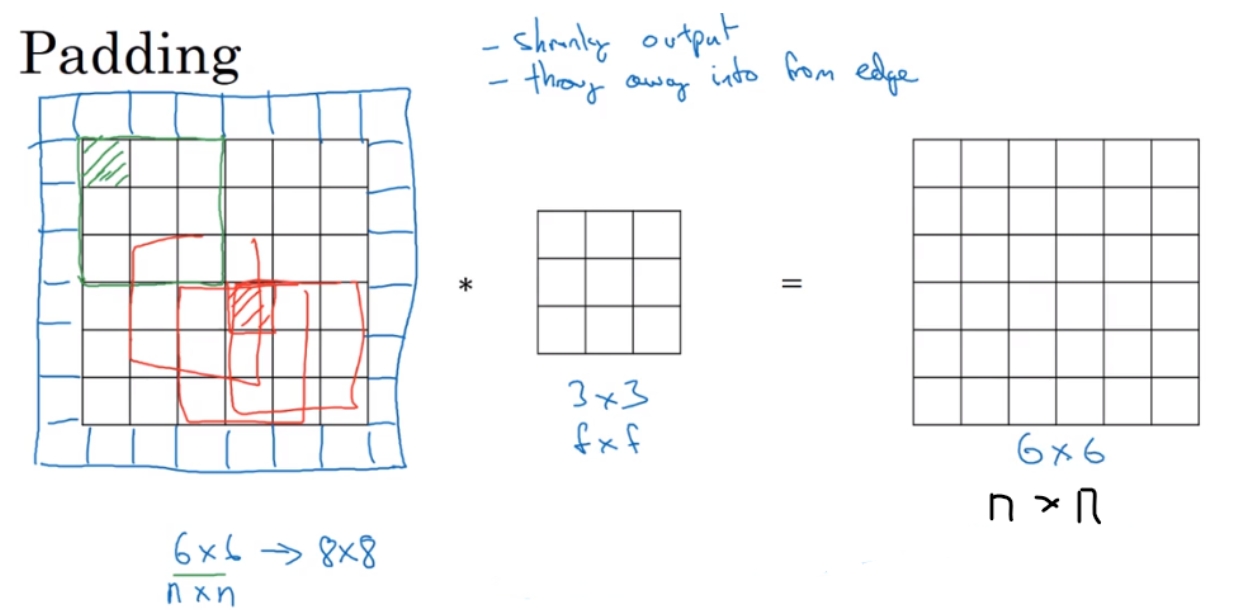 Padding
- shrinky output
- throw away info from edge
*
=
3 × 3
f × f
6 × 6
n × n
6 × 6 → 8 × 8
n × n